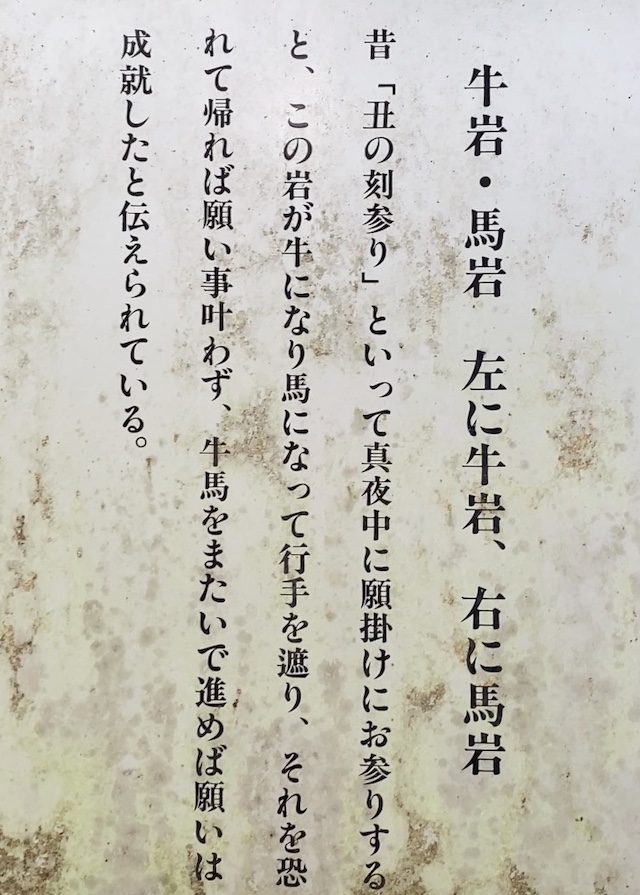 牛岩・馬岩　左に牛岩、右に馬岩
昔「丑の刻参り」といって真夜中に願掛けにお参りする
と、この岩が牛になり馬になって行手を遮り、それを恐
れて帰れば願い事叶わず、牛馬をまたいで進めば願いは
成就したと伝えられている。